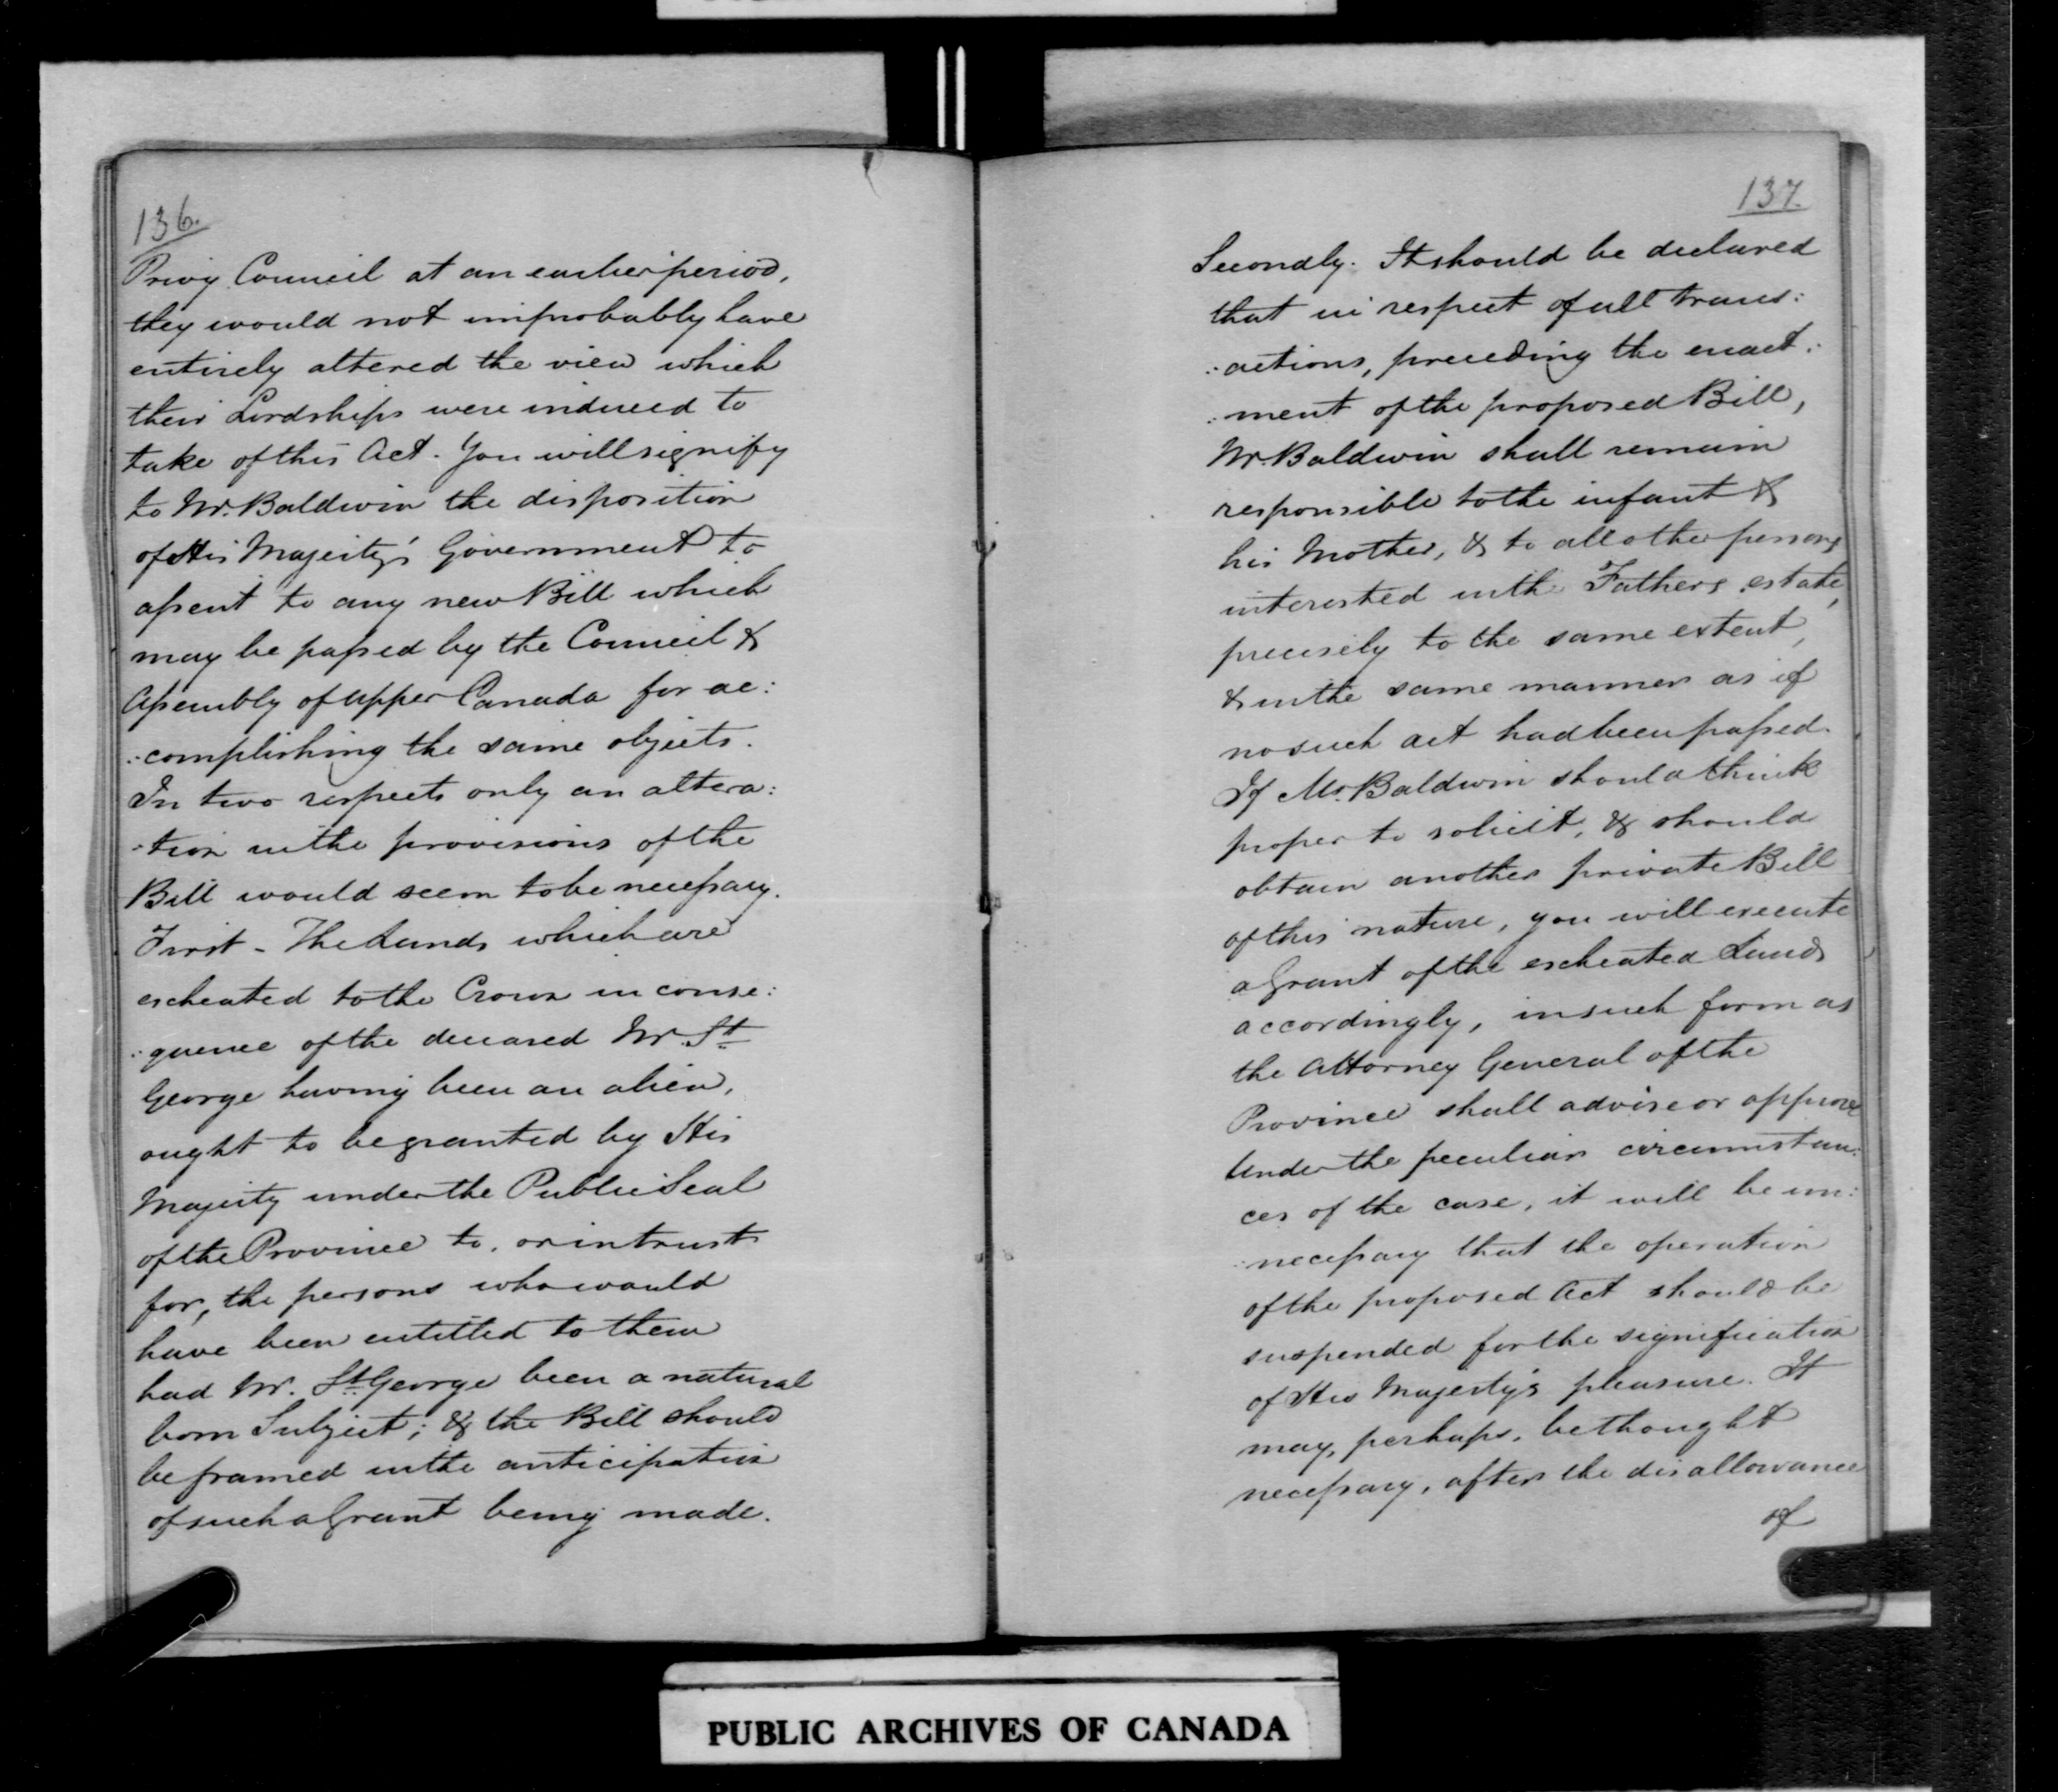 136.
Privy Council at an earlier period,
they would not improbably have
entirely altered the view which
their Lordships were induced to
take of this Act. You will signify
to Mr. Baldwin the disposition
of His Majesty's Government to
assent to any new Bill which
may be passed by the Council &
Assembly of Upper Canada for ac:
:complishing the same objects.
In two respects only an altera:
:tion in the provisions of the
Bill would seem to be necessary.
First - The Lands which are
escheated to the Crown in conse:
:quence of the deceased Mr. St.
George having been an alien,
ought to be granted by His
Majesty under the Public Seal
of the Province to, or in trust
for, the persons who would
have been entitled to them
had Mr. St. George been a natural
born Subject; & the Bill should
be framed in the anticipation
of such a Grant being made.
137.
Secondly. It should be declared
that in respect of all trans:
:actions, preceding the enact:
:ment of the proposed Bill,
Mr. Baldwin shall remain
responsible to the infant &
his Mother, & to all other persons
interested in the Fathers estate,
precisely to the same extent,
& in the same manner as if
no such act had been passed.
If Mr. Baldwin should think
proper to solicit, & should
obtain another private Bill
of this nature, you will execute
a Grant of the escheated Lands
accordingly, in such form as
the Attorney General of the
Province shall advise or approve
Under the peculiar circumstan:
ces of the case, it will be un:
:necessary that the operation
of the proposed Act should be
suspended for the signification
of His Majesty's pleasure. It
may, perhaps, be thought
necessary, after the disallowance
of
PUBLIC ARCHIVES OF CANADA